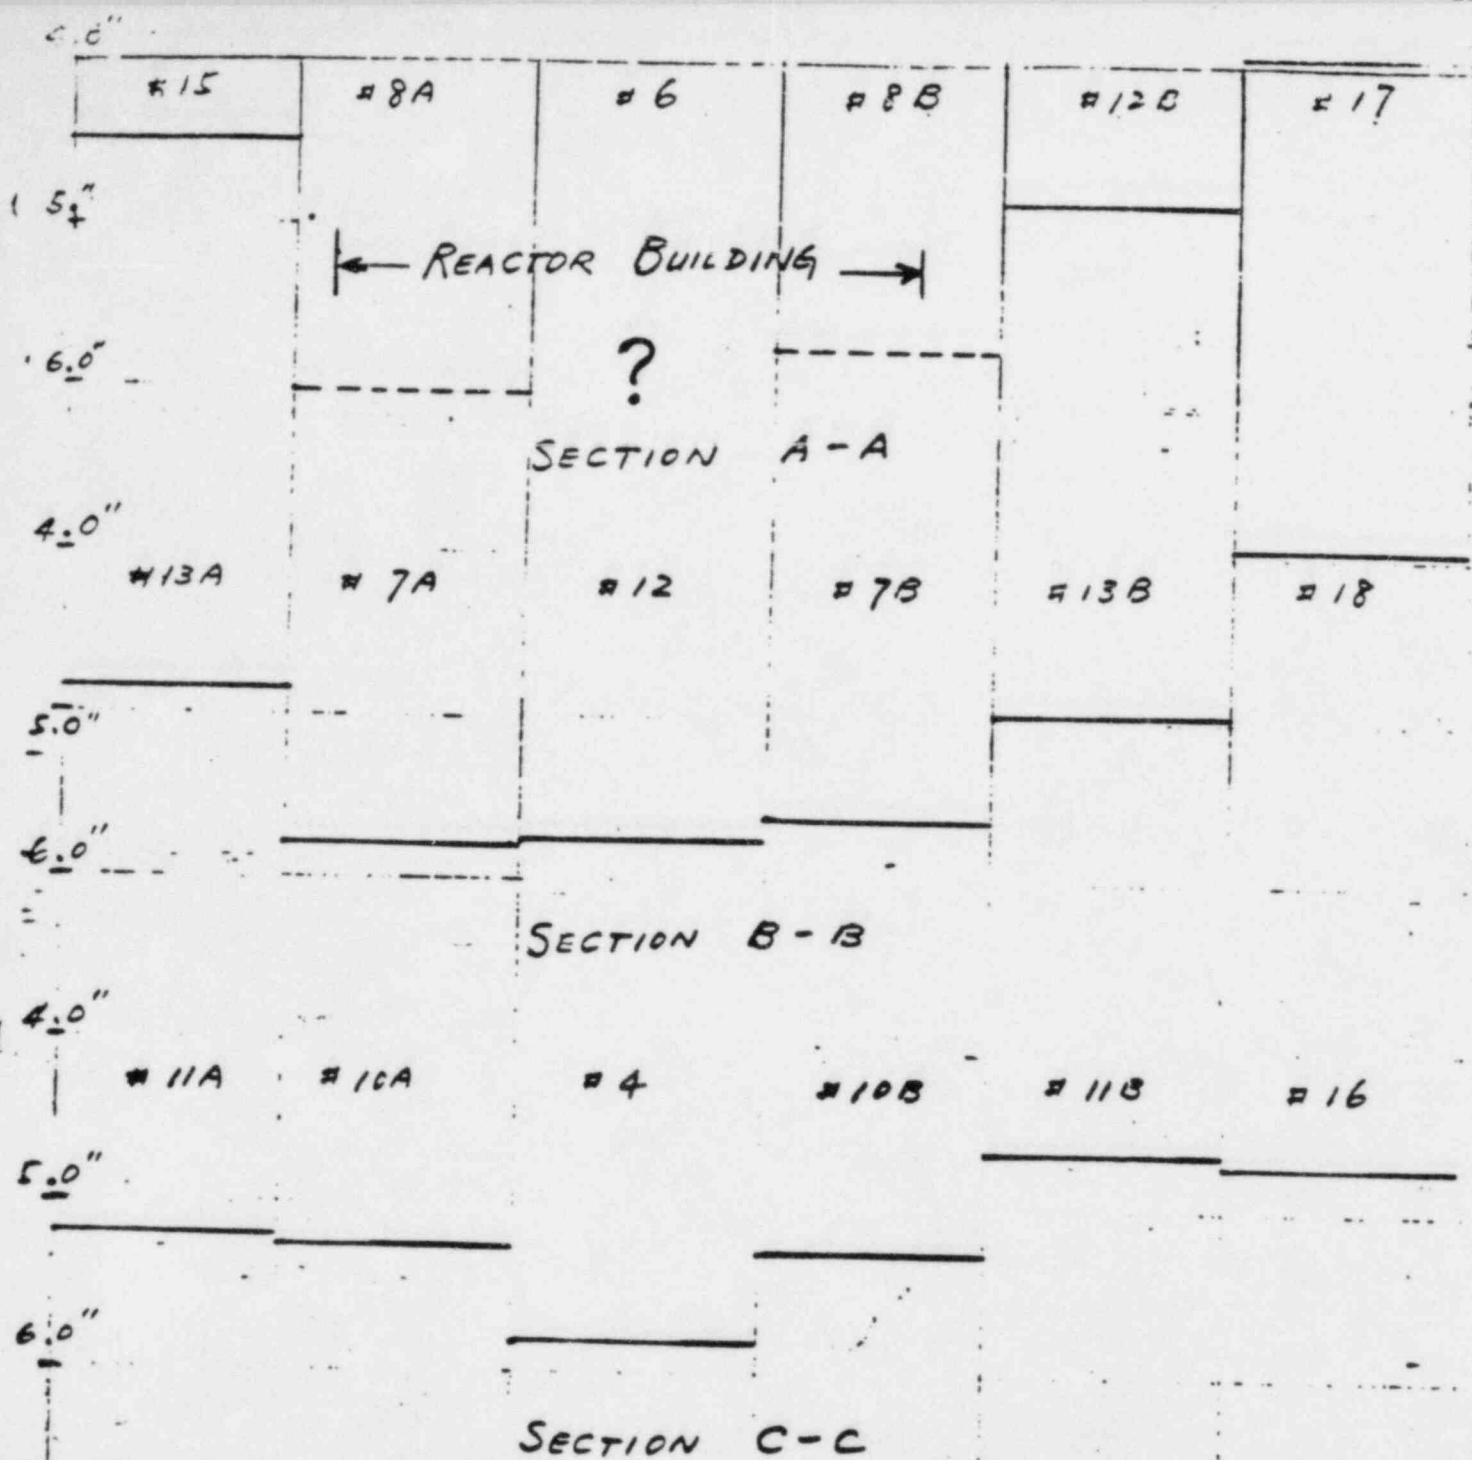 #15 #8A #6 #8B #12 #17
5."
← REACTOR BUILDING →
6.0"
?
SECTION A-A
4.0"
#13A #7A #12 #7B #13B #18
5.0"
6.0"
SECTION B-B
4.0"
#11A #10A #4 #10B #11B #16
5.0"
6.0"
SECTION C-C